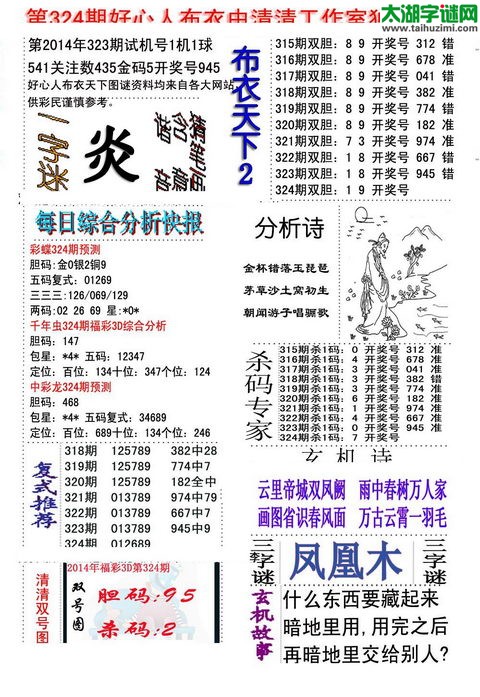 第324期好心人布衣虫清清工作室
太湖字谜网
www.taihuzimi.com
第2014年323期试机号1机1球
541关注数435金码5开奖号945
好心人布衣天下图谜资料均来自各大网站,
供彩民谨慎参考。
一字迷
炎
布衣天下2
315期双胆: 8 9 开奖号 312 错
316期双胆: 8 9 开奖号 678 准
317期双胆: 8 9 开奖号 041 错
318期双胆: 8 9 开奖号 382 准
319期双胆: 8 9 开奖号 774 错
320期双胆: 8 9 开奖号 182 准
321期双胆: 7 3 开奖号 974 准
322期双胆: 1 8 开奖号 667 错
323期双胆: 1 8 开奖号 945 错
324期双胆: 1 9 开奖号
每日综合分析快报
彩蝶324期预测
胆码:金0银2铜9
五码复式: 01269
三三三:126/069/129
两码:02 26 69 星:*0*
千年虫324期福彩3D综合分析
胆码: 147
包星: *4* 五码: 12347
定位: 百位: 134十位: 347个位: 124
中彩龙324期预测
胆码: 468
包星: *4* 五码复式: 34689
定位: 百位: 689十位: 134个位: 246
分析诗
金杯错落玉琵琶
茅草沙土窝初生
朝闻游子唱骊歌
杀码专家
315期杀1码: 0 开奖号 312 准
316期杀1码: 4 开奖号 678 准
317期杀1码: 3 开奖号 041 准
318期杀1码: 3 开奖号 382 错
319期杀1码: 3 开奖号 774 准
320期杀1码: 6 开奖号 182 准
321期杀1码: 1 开奖号 974 准
322期杀1码: 4 开奖号 667 准
323期杀1码: 0 开奖号 945 准
324期杀1码: 7 开奖号
复式推荐
318期 125789 382中28
319期 125789 774中7
320期 125789 182全中
321期 013789 974中79
322期 013767 667中67
323期 013767 945中9
324期 012689
玄机诗
云里帝城双凤阙 雨中春树万人家
画图省识春风面 万古云霄一羽毛
清清双号图
2014年福彩3D第324期
双号图
胆码:95
杀码:2
三字谜
李
凤凰木
三字谜
玄机故事
什么东西要藏起来
暗地里用,用完之后
再暗地里交给别人?